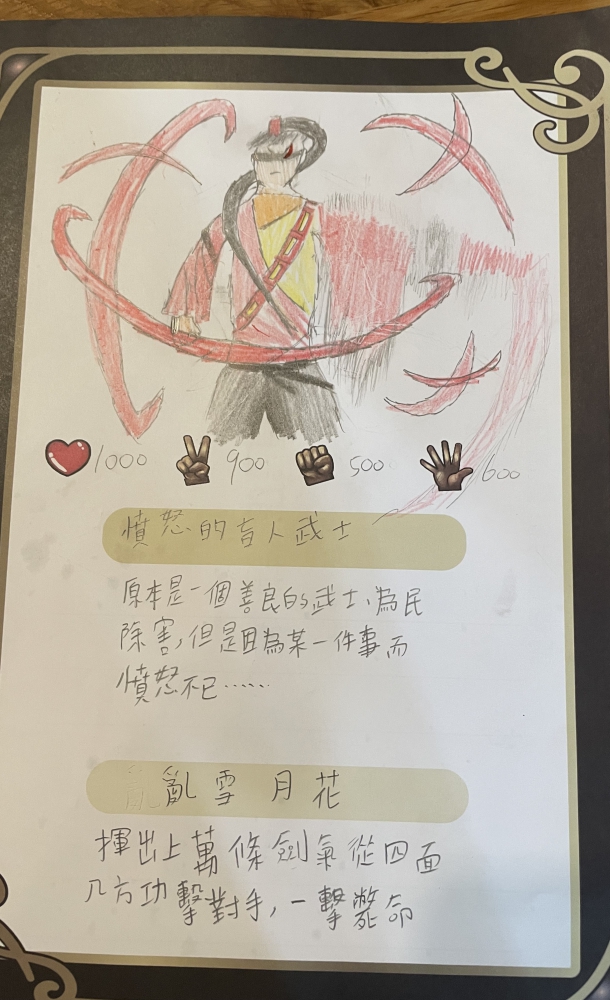 1000 900 500 600
憤怒的盲人武士
原本是一個善良的武士、為民
除害,但是因為某一件事而
憤怒不已……
亂雪月花
揮出上萬條劍氣從四面
八方功擊對手,一擊斃命